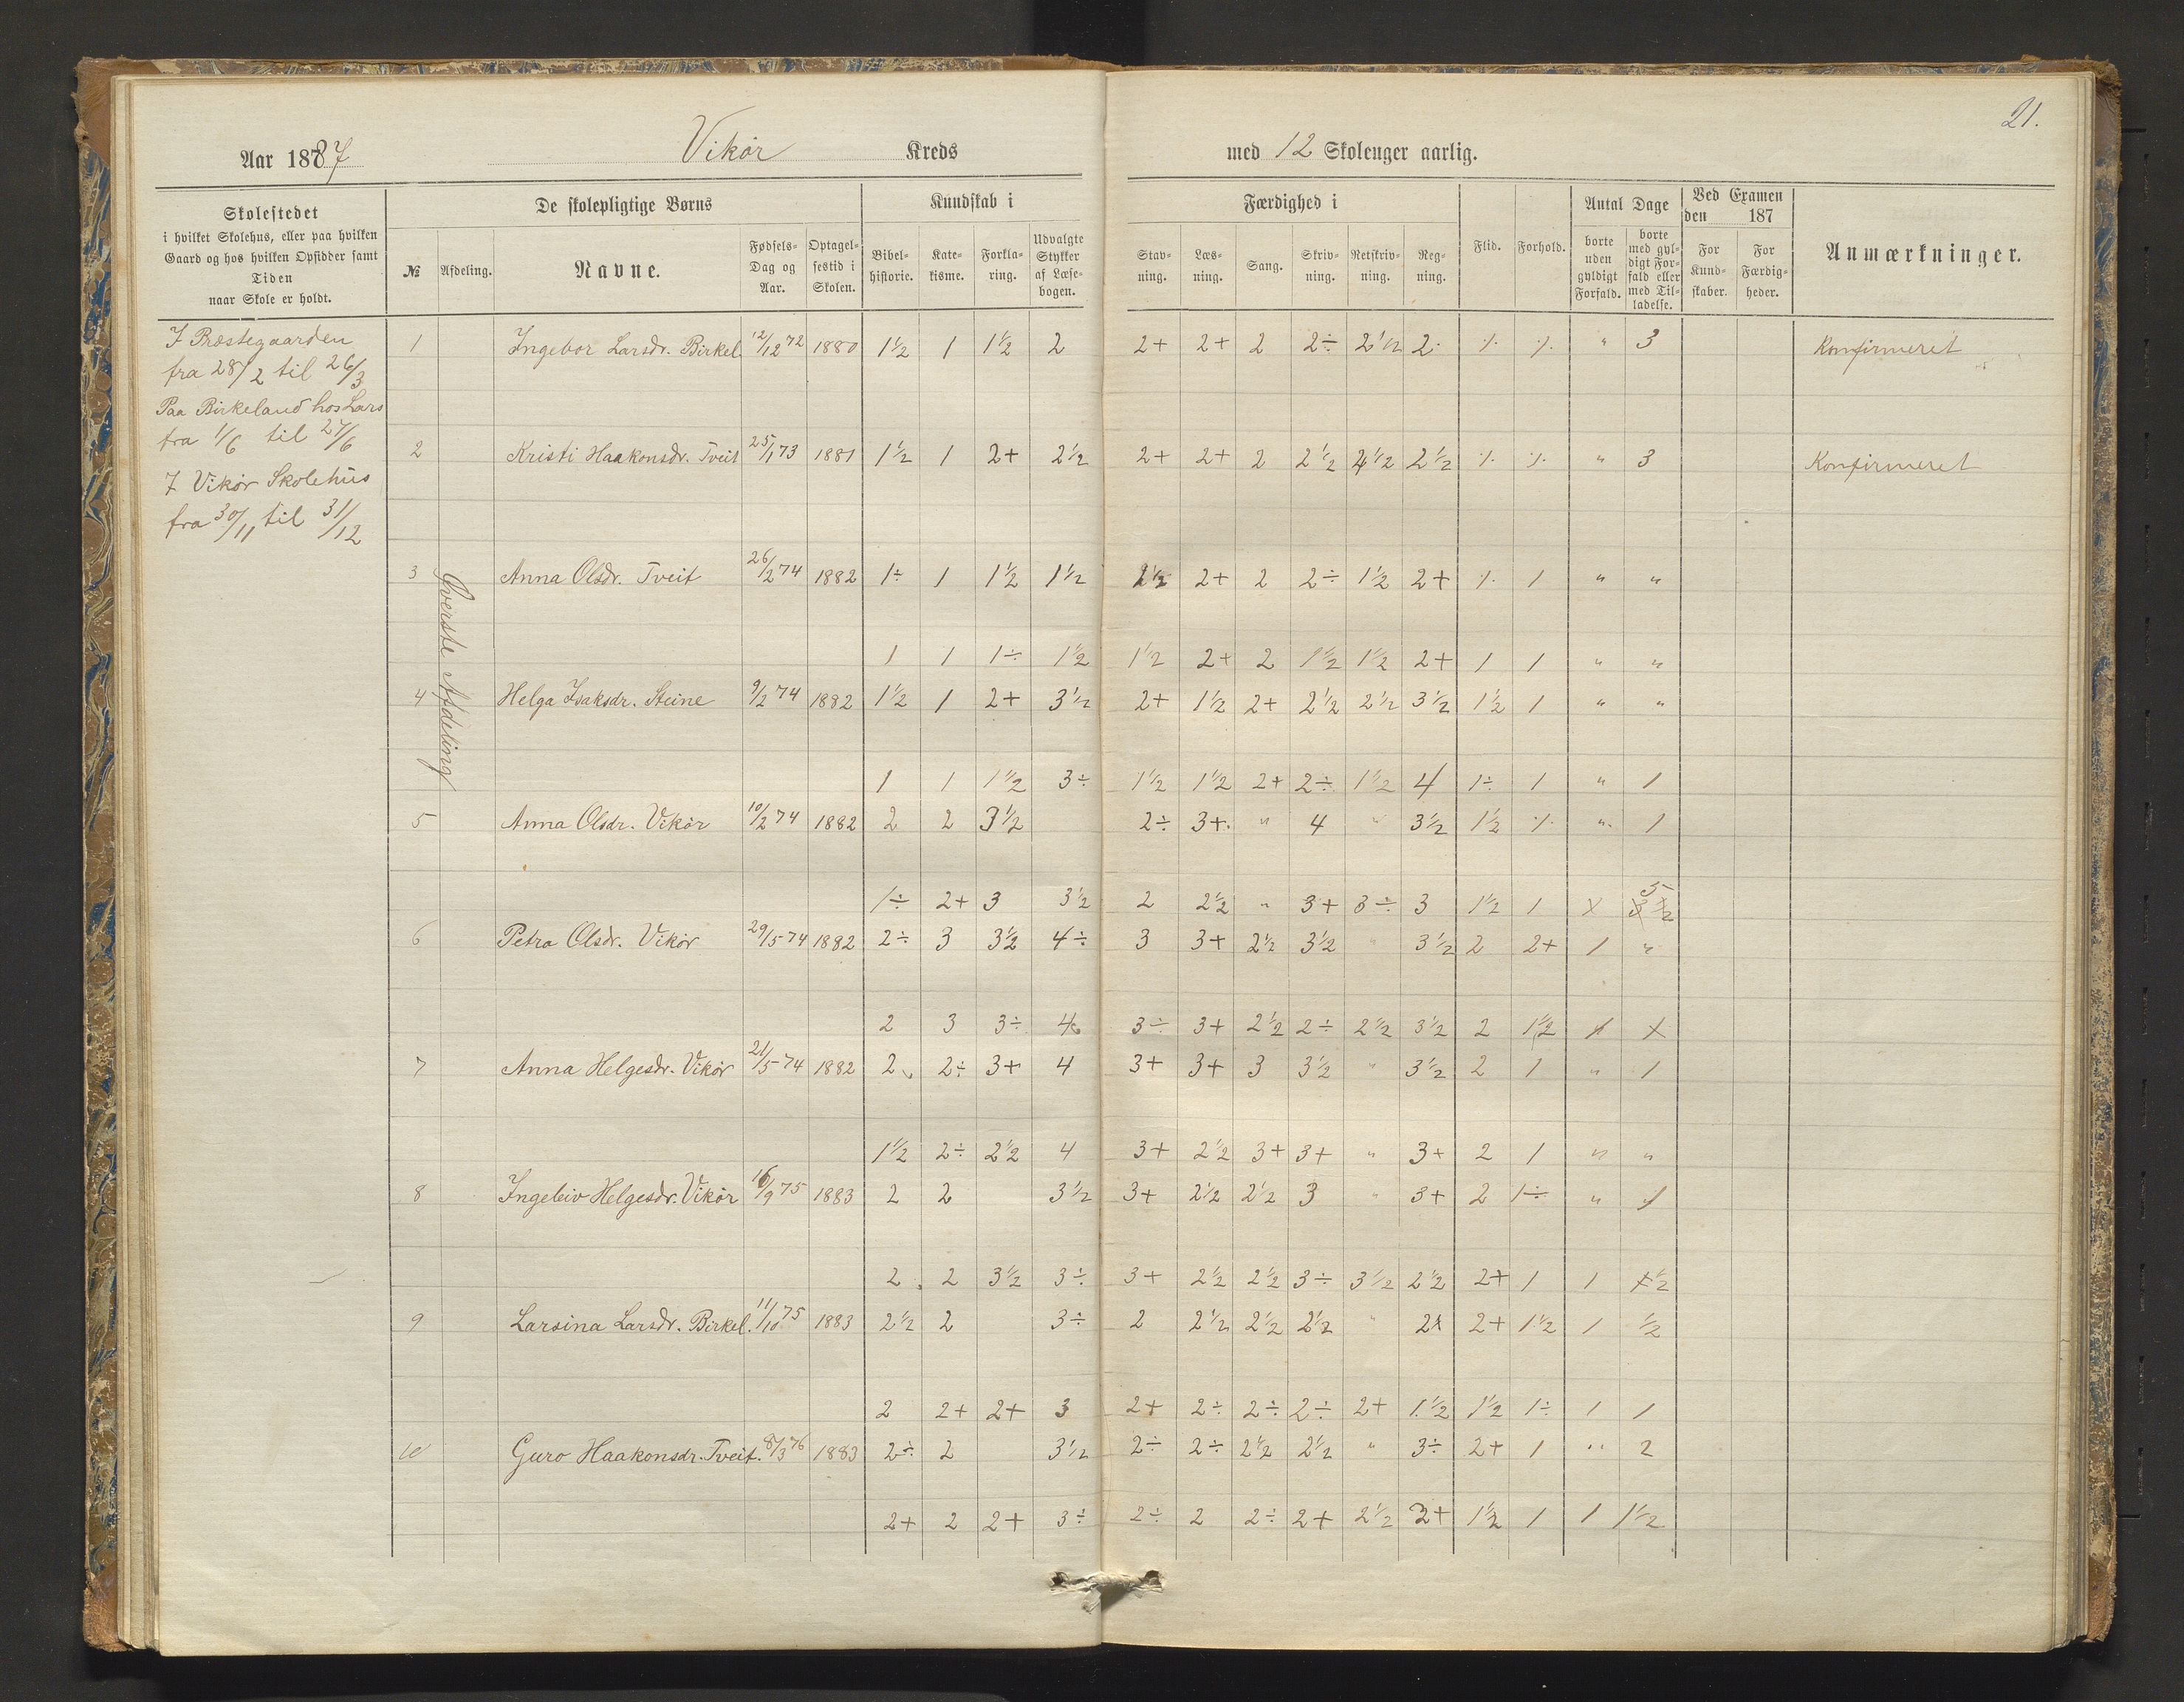 21.
Aar 1887 Vikør Kreds med 12 Skoleuger aarlig.
Skolestedet
i hvilket Skolehus, eller paa hvilken
Gaard og hos hvilken Opsidder samt
Tiden
naar Skole er holdt.
De skolepligtige Børns
№ Afdeling. Navne. Fødsels-Dag og Aar. Optagelsestid i Skolen.
Kundskab i
Bibelhistorie. Katekisme. Forklaring. Udvalgte Stykker af Læsebogen.
Færdighed i
Stavning. Læsning. Sang. Skrivning. Retskrivning. Regning.
Flid. Forhold.
Antal Dage
borte uden gyldigt Forfald. borte med gyldigt Forfald eller med Tilladelse.
Ved Examen den 187
For Kundskaber. For Færdigheder.
Anmærkninger.
I Præstegaarden
fra 28/2 til 26/3
Paa Birkeland hos Lars
fra 1/6 til 27/6
I Vikør Skolehus
fra 30/11 til 31/12
Øverste Afdeling
1 Ingebor Larsdr. Birkel. 12/12 72 1880 1½ 1 1½ 2 2+ 2+ 2 2÷ 2½ 2 ·/· ·/· " 3 Konfirmeret
2 Kristi Haakonsdr. Tveit 25/1 73 1881 1½ 1 2+ 2½ 2+ 2+ 2 2½ 2½ ·/· ·/· " 3 Konfirmeret
3 Anna Olsdr. Tveit 26/2 74 1882 1÷ 1 1½ 1½ 2+ 2 2÷ 1½ 2+ ·/· 1 " "
1 1 1÷ 1½ 1½ 2+ 2 1½ 1½ 2+ 1 1 " "
4 Helga Isaksdr. Steine 9/2 74 1882 1½ 1 2+ 3½ 2+ 1½ 2+ 2½ 2½ 3½ 1½ 1 " "
1 1 1½ 3÷ 1½ 1½ 2+ 2÷ 1½ 4 1÷ 1 " 1
5 Anna Olsdr. Vikør 10/2 74 1882 2 2 3½ 2÷ 3+ " 4 " 3½ 1½ ·/· " 1
1÷ 2+ 3 3½ 2 2½ " 3+ 3÷ 3 1½ 1 5
6 Petra Olsdr. Vikør 29/5 74 1882 2÷ 3 3½ 4÷ 3 3+ 2½ 3½ " 3½ 2 2+ 1 "
2 3 3÷ 4 3÷ 3+ 2½ 2÷ 2½ 3½ 2 1½
7 Anna Helgesdr. Vikør 21/5 74 1882 2 2÷ 3+ 4 3+ 3+ 3 3½ " 3½ 2 1 " 1
1½ 2÷ 2½ 4 3+ 2½ 3+ 3+ " 3+ 2 1 " "
8 Ingeleiv Helgesdr. Vikør 16/9 75 1883 2 2 3½ 3+ 2½ 2½ 3 " 3+ 2 1÷ " 1
2 2 3½ 3÷ 3+ 2½ 2½ 3÷ 3½ 2½ 2+ 1 1
9 Larsina Larsdr. Birkel. 11/10 75 1883 2½ 2 3÷ 2 2½ 2½ 2½ " 2+ 1½ 1 ½
2 2+ 2+ 3 2+ 2÷ 2÷ 2÷ 2+ 1½ 1½ 1÷ 1 1
10 Guro Haakonsdr. Tveit. 8/3 76 1883 2÷ 2 3½ 2÷ 2÷ 2½ 2½ " 3÷ 2+ 1 " 2
2+ 2 2+ 3÷ 2÷ 2 2÷ 2+ 2½ 2+ 1½ 1 1 1½